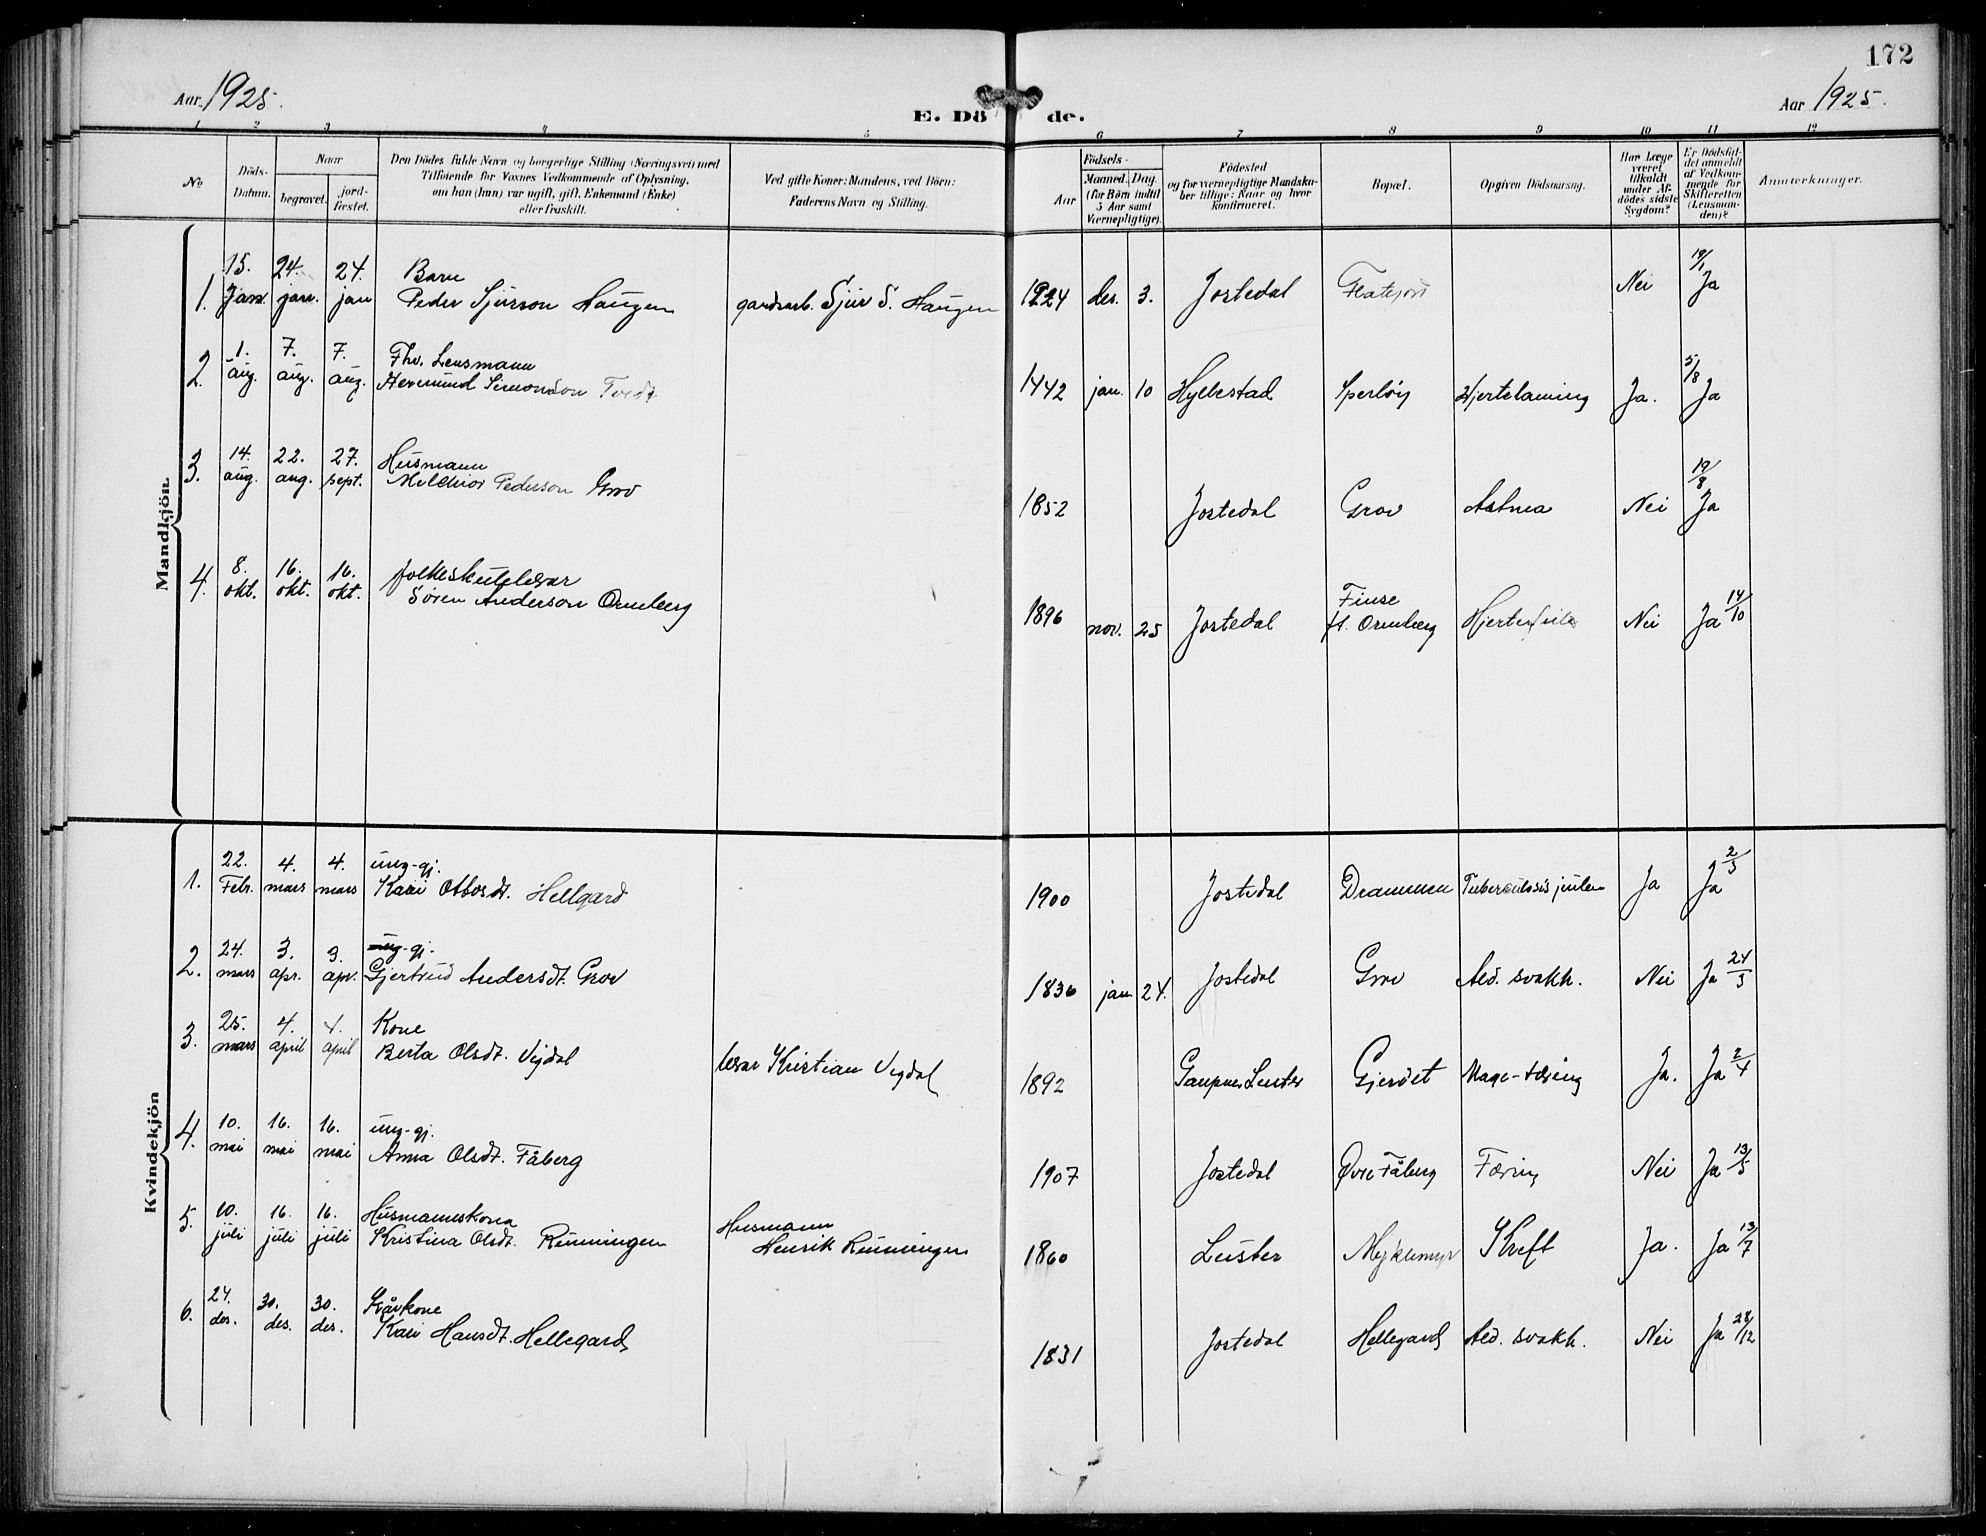 172
Aar 1925.
E. Dö de.
Aar 1925.
1 2 3 4 5 6 7 8 9 10 11 12
No
Döds-
Datum.
Naar
begravet.
jord-
fæstet.
Den Dödes fulde Navn og borgerlige Stilling (Næringsvei) med
Tilföiende for Voxnes Vedkommende af Oplysning,
om han (hun) var ugift, gift, Enkemand (Enke)
eller fraskilt.
Ved gifte Koner: Mandens, ved Börn:
Faderens Navn og Stilling.
Födsels-
Aar
Maaned. Dag.
(for Börn indtil
5 Aar samt
Værnepligtige).
Födested
og for værnepligtige Mandska-
ber tillige: Naar og hvor
konfirmeret.
Bopæl.
Opgiven Dödsaarsag.
Har Læge
været
tilkaldt
under Af-
dödes sidste
Sygdom?
Er Dödsfal-
det anmeldt
af Vedkom-
mende for
Skifteretten
(Lensman-
den)?
Anmærkninger.
Mandkjön.
15. 24. 24. Barn 19/1
1. Jan. jan. jan Peder Sjurson Haugen gardarb. Sjur S. Haugen 1924 des. 3. Jostedal Nei Ja
1. 7. 7. Fhv. Lensmann 5/8
2. aug. aug. aug. Hermund Simonson Tvedt 1842 jan. 10 Hyllestad Sperlöy Hjertelaming Ja. Ja
14. 22. 27. Husmann 19/8
3. aug. aug. sept. Melchior Pederson Grov 1852 Jostedal Grov Astma Nei Ja
8. 16. 16. folkeskulelærar Finse 14/10
4. okt. okt. okt. Sören Anderson Ormberg 1896 nov. 25 Jostedal f. Ormberg Hjertefeile Nei Ja
Kvindekjön
22. 4. 4. ung-gj. 2/3
1. Febr. mars mars Kari Ottosdt. Hellgard 1900 Jostedal Drammen Tuberculosis pulm Ja Ja
24. 3. 3. ung-gj. 24/3
2. mars apr. apr. Gjertrud Andersdt. Grov 1836 jan 24. Jostedal Grov Ald. svakh. Nei Ja
25. 4. 4. Kone 2/4
3. mars april april Berta Olsdt. Vigdal lærar Kristian Vigdal 1892 Gaupne, Luster Gjerdet Mage-tæring Ja. Ja
10. 16. 16. ung-gj. 13/5
4. mai mai mai Anna Olsdt. Fåberg 1907 Jostedal Øvre Fåberg Tæring Nei Ja
10. 16. 16. Husmannskona Husmann 13/7
5. juli juli juli Kristina Olsdt. Rünningen Henrik Rünningen 1860 Luster Myklemyr Kreft Ja. Ja
24. 30. 30. Kårkone 28/12
6. des. des. des. Kari Hansdt. Hellegard 1831 Jostedal Hellegard Ald. svakh. Nei Ja